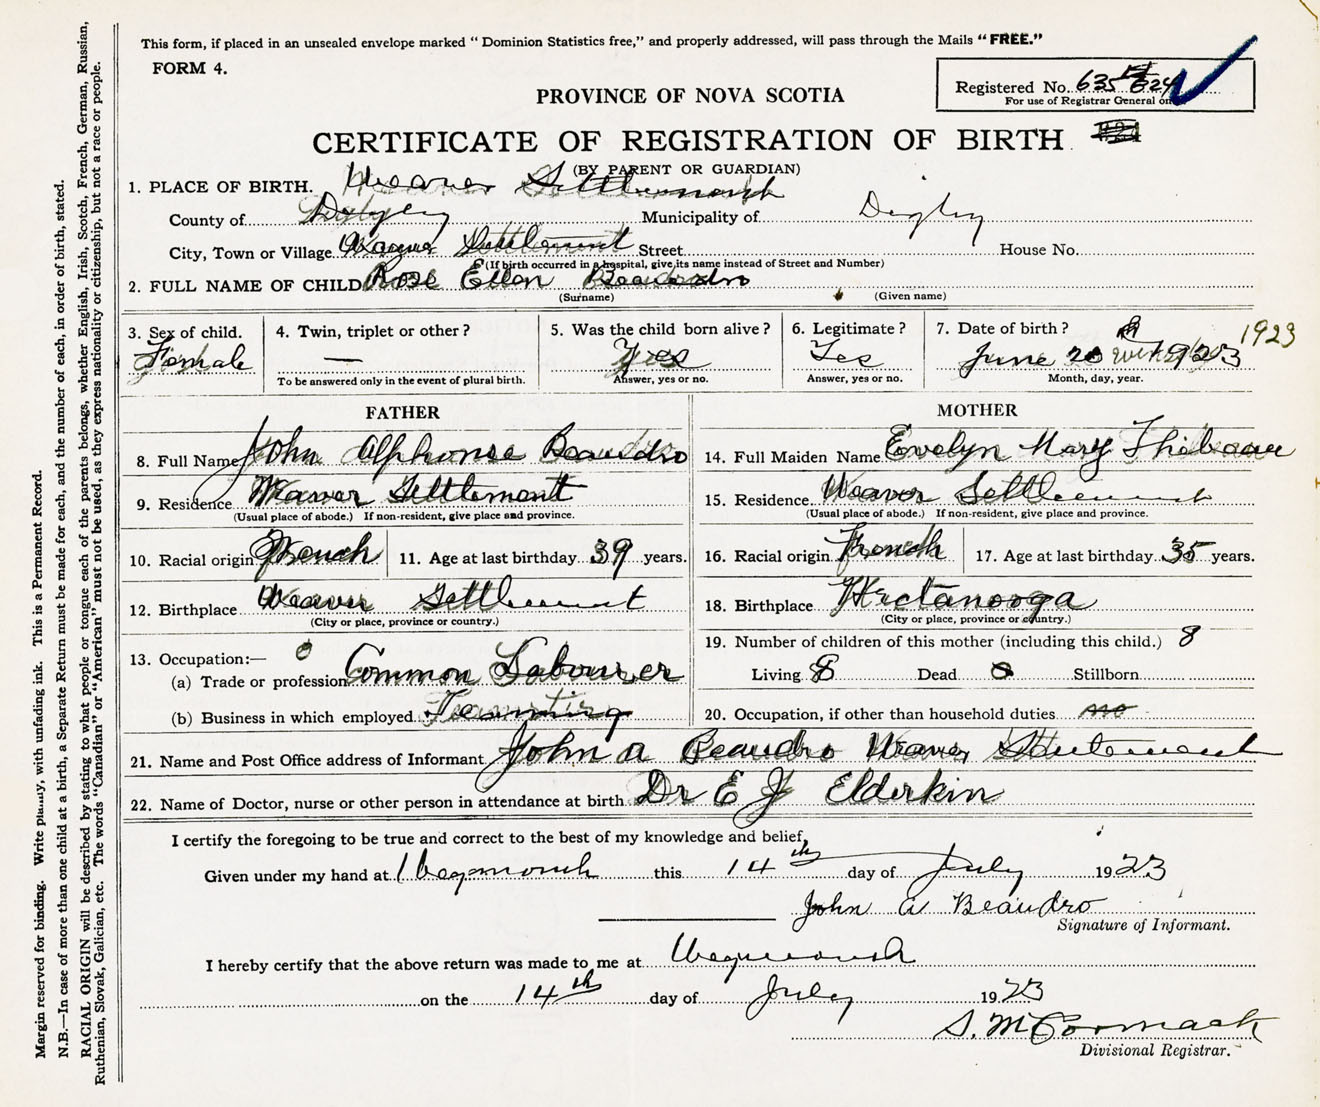 This form, if placed in an unsealed envelope marked "Dominion Statistics free," and properly addressed, will pass through the Mails "FREE."
FORM 4.
Registered No. 635
For use of Registrar General on
PROVINCE OF NOVA SCOTIA
CERTIFICATE OF REGISTRATION OF BIRTH
(BY PARENT OR GUARDIAN)
1. PLACE OF BIRTH. Weaver Settlement
County of Digby Municipality of Digby
City, Town or Village Weaver Settlement Street House No.
(If birth occurred in a hospital, give its name instead of Street and Number)
2. FULL NAME OF CHILD Rose Ellen Beaudro
(Surname) (Given name)
3. Sex of child. Female
4. Twin, triplet or other? —
To be answered only in the event of plural birth.
5. Was the child born alive? Yes
Answer, yes or no.
6. Legitimate? Yes
Answer, yes or no.
7. Date of birth? 1923
June 20 1923
Month, day, year.
FATHER
8. Full Name John Alphonse Beaudro
9. Residence Weaver Settlement
(Usual place of abode.) If non-resident, give place and province.
10. Racial origin French 11. Age at last birthday 39 years.
12. Birthplace Weaver Settlement
(City or place, province or country.)
13. Occupation:—
(a) Trade or profession Common Labourer
(b) Business in which employed
MOTHER
14. Full Maiden Name Evelyn Mary Thibeau
15. Residence Weaver Settlement
(Usual place of abode.) If non-resident, give place and province.
16. Racial origin French 17. Age at last birthday 35 years.
18. Birthplace Hectanooga
(City or place, province or country.)
19. Number of children of this mother (including this child.) 8
Living 8 Dead 0 Stillborn
20. Occupation, if other than household duties no
21. Name and Post Office address of Informant John A Beaudro Weaver Settlement
22. Name of Doctor, nurse or other person in attendance at birth Dr E J Elderkin
I certify the foregoing to be true and correct to the best of my knowledge and belief,
Given under my hand at Weymouth this 14th day of July 1923
John A Beaudro
Signature of Informant.
I hereby certify that the above return was made to me at Weymouth
on the 14th day of July 1923
S. McCormack
Divisional Registrar.
Margin reserved for binding. Write plainly, with unfading ink. This is a Permanent Record.
N.B.—In case of more than one child at a birth, a Separate Return must be made for each, and the number of each, in order of birth, stated.
RACIAL ORIGIN will be described by stating to what people or tongue each of the parents belongs, whether English, Irish, Scotch, French, German, Russian,
Ruthenian, Slovak, Galician, etc. The words "Canadian" or "American" must not be used, as they express nationality or citizenship, but not a race or people.